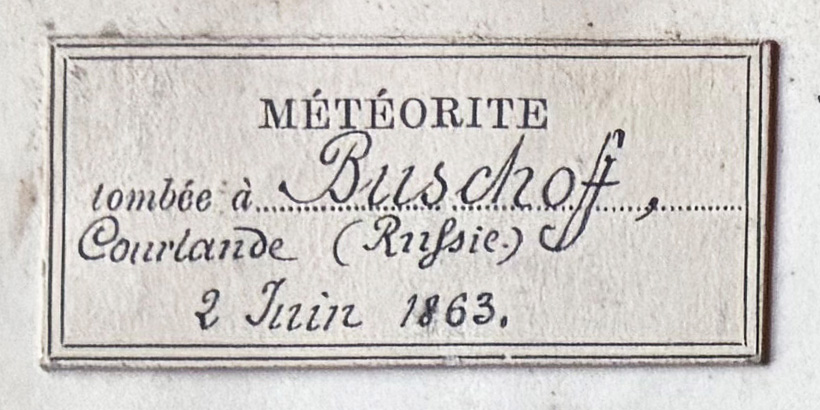 MÉTÉORITE
tombée à Buschoff,
Courlande (Russie.)
2 Juin 1863.